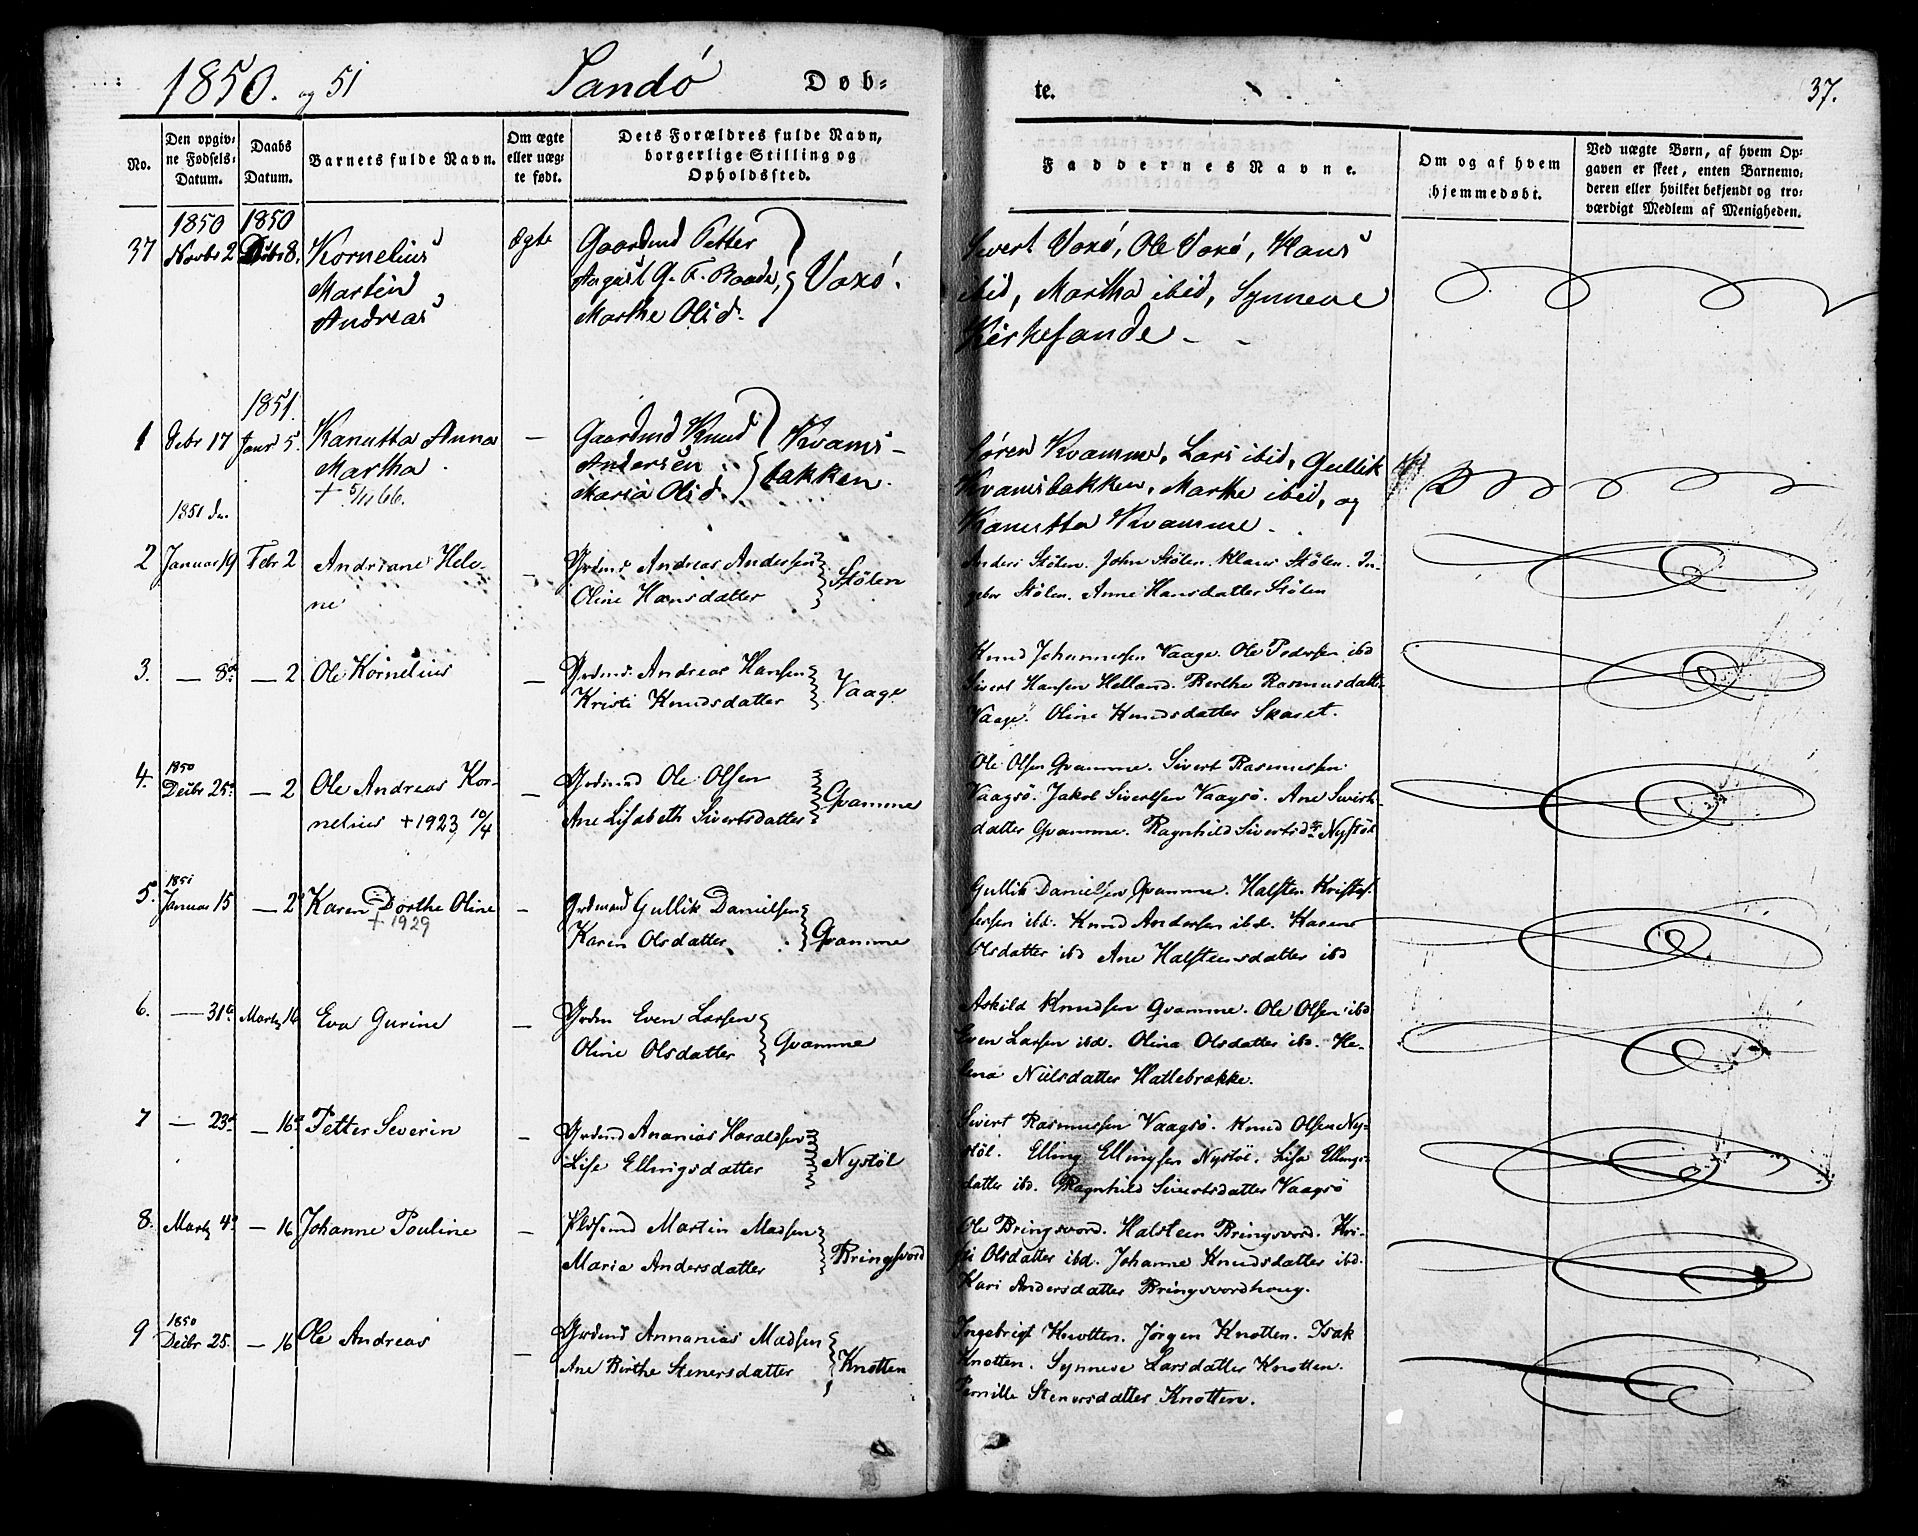 1850. og 51 Sandö Døb-
te. 37.
No.
Den opgiv-
ne Fødsels-
Datum.
Daabs
Datum.
Barnets fulde Navn.
Om ægte
eller uæg-
te født.
Dets Forældres fulde Navn,
borgerlige Stilling og
Opholdssted.
Faddernes Navne.
Om og af hvem
hjemmedøbt.
Ved uægte Børn, af hvem Op-
gaven er skeet, enten Barnemo-
deren eller hvilket bekjendt og tro-
værdigt Medlem af Menigheden.
1850 1850
37 Novbr 2 Dcbr 8. Kornelius ægte Gaardmd Petter
Martin August G. F. Baade, Voxö.
Andreas Marthe Olsd.
Sivert Voxö, Ole Voxö, Hans
ibid, Martha ibid, Synneve
Kirkesande
1851.
1 Debr 17 Janr 5. Kanutta Anna — Gaardmd Knud Kvams-
Martha. Andersen bakken.
+ 5/11 66. Maria Olsd.
Søren Kvamme, Lars ibid, Gullik
Kvamsbakken, Marthe ibid, og
Kanutta Kvamme.
1851
2 Januar 19 Febr 2 Andriane Hele- — Grdmd Andreas Andersen Stölen
ne Oline Hansdatter
Anders Stölen. John Stölen. Klaus Stölen. In-
gebor Stölen. Anne Hansdatter Stölen
3. — 8de — 2 Ole Kornelius — Grdmd. Andreas Hansen Vaage
Kristi Knudsdatter
Knud Johannessen Vaage. Ole Pedersen ibd
Sivert Hansen Helland. Berthe Rasmusdatter
Vaage. Oline Knudsdatter Skaret.
1850
4. Decbr 25de — 2 Ole Andreas Kor- — Grdmnd Ole Olsen Gvamme
nelius +1923 10/4 Ane Lisabeth Sivertsdatter
Ole Olsen Gvamme. Sivert Rasmussen
Vaagsö. Jakob Sivertsen Vaagsö. Ane Siverts-
datter Gvamme. Ragnhild Sivertsdtr Nystöl
1851
5. Januar 15 — 2 Karen Dorthe Oline — Grdmand Gullik Danielsen Gvamme
+ 1929 Karen Olsdatter
Gullik Danielsen Gvamme. Halsten Kristof-
fersen ibd. Knud Andersen ibd. Karene
Olsdatter ibd Ane Halsteensdatter ibd
6. — 31te Marts 16 Eva Gurine — Grdm Even Larsen Gvamme
Oline Olsdatter
Askild Knudsen Gvamme. Ole Olsen ibd
Even Larsen ibd. Olina Olsdatter ibd. He-
lena Nielsdatter Hattebrække.
7 — 23de — 16de Petter Severin — Grdmd Ananias Haraldsen Nystöl
Lise Ellingsdatter
Sivert Rasmussen Vaagsö. Knud Olsen Ny-
stöl. Elling Ellingsen Nystöl. Lisa Ellings-
datter ibd. Ragnhild Sivertsdatter Vaagsö
8. Marts 4de — 16 Johanne Pauline — Plsmd Martin Madsen Bringsvord
Maria Andersdatter
Ole Bringsvord. Halsteen Bringsvord. Kri-
sti Olsdatter ibd. Johanne Knudsdatter ibd.
Kari Andersdatter Bringsvordhoug.
1850
9 Decbr 25. — 16 Ole Andreas — Grdmd Annanias Madsen Knotten
Ane Birthe Stenersdatter
Ingebrigt Knotten. Jörgen Knotten. Isak
Knotten. Synneve Larsdatter Knotten.
Pernille Stenersdatter Knotten.